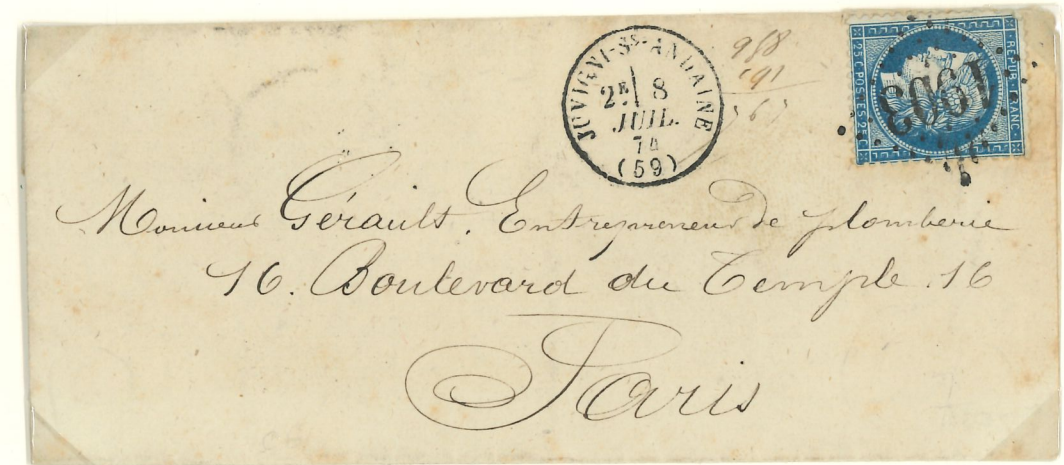 JUVIGNI-SS-ANDAINE
2E 8
JUIL.
74
(59)
958
191
25 C. POSTES 25 C.
REPUB. FRANC.
1903
Monsieur Gérault. Entrepreneur de plomberie
16. Boulevard du Temple. 16
Paris